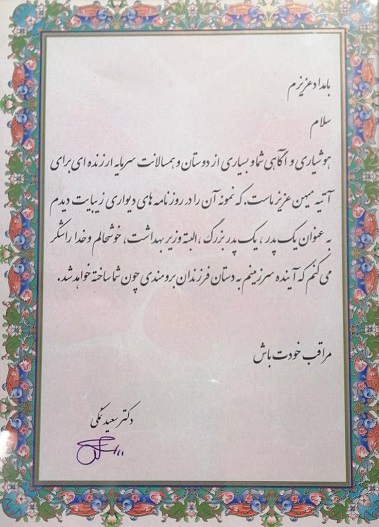 بامداد عزیزم
سلام
هوشیاری و آگاهی شما و بسیاری از دوستان و همسالانت سرمایه ارزنده ای برای
آتیه میهن عزیز ماست. که نمونه آن را در روزنامه های دیواری زیبایت دیدم
به عنوان یک پدر، یک پدربزرگ، البته وزیر بهداشت، خوشحالم و خدا را شکر
می کنم که آینده سرزمینم به دستان فرزندان برومندی چون شما ساخته خواهد شد.
مراقب خودت باش
دکتر سعید نمکی